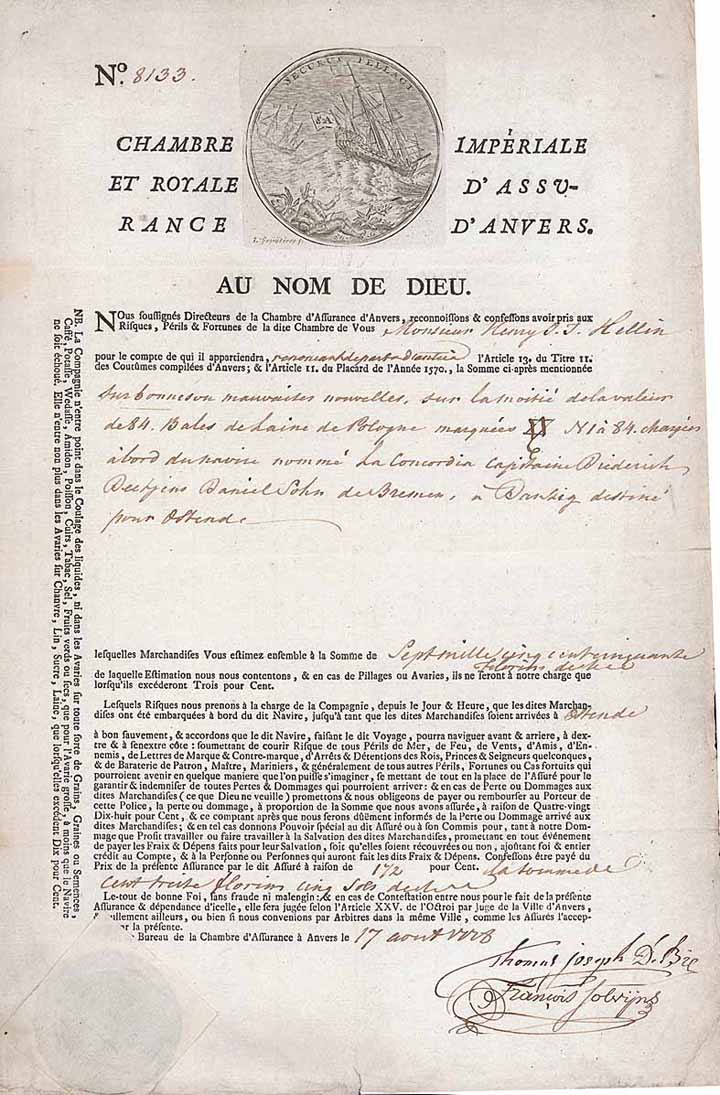 Nº. 8133.
SECURUS PELLAGI
CHAMBRE IMPÉRIALE
ET ROYALE D'ASSU-
RANCE D'ANVERS.
AU NOM DE DIEU.
NOus soussignés Directeurs de la Chambre d'Assurance d'Anvers, reconnoissons & confessons avoir pris aux
Risques, Périls & Fortunes de la dite Chambre de Vous Monsieur Henry J. Hellin
pour le compte de qui il appartiendra, renonçant de part & d'autre à l'Article 13. du Titre 11.
des Coutûmes compilées d'Anvers; & l'Article 11. du Placard de l'Année 1570., la Somme ci-après mentionnée
sur bonnes ou mauvaises nouvelles, sur la moitié de la valeur
de 84. Bales de Laine de Pologne marquées N 1 à 84. chargées
à bord du navire nommé La Concordia Capitaine Diederich
Daniel Sohn de Bremen, à Dantzig destiné
pour Ostende
lesquelles Marchandises Vous estimez ensemble à la Somme de Sept mille cinq cent cinquante
florins de
de laquelle Estimation nous nous contentons, & en cas de Pillages ou Avaries, ils ne seront à notre charge que
lorsqu'ils excéderont Trois pour Cent.
Lesquels Risques nous prenons à la charge de la Compagnie, depuis le Jour & Heure, que les dites Marchan-
dises ont été embarquées à bord du dit Navire, jusqu'à tant que les dites Marchandises soient arrivées à Ostende
à bon sauvement, & accordons que le dit Navire, faisant le dit Voyage, pourra naviguer avant & arriere, à dex-
tre & à senextre côte: soumettant de courir Risque de tous Périls de Mer, de Feu, de Vents, d'Amis, d'En-
nemis, de Lettres de Marque & Contre-marque, d'Arrêts & Détentions des Rois, Princes & Seigneurs quelconques,
& de Baraterie de Patron, Maître, Mariniers, & généralement de tous autres Périls, Fortunes ou Cas fortuits qui
pourroient avenir en quelque maniere que l'on puisse s'imaginer, se mettant de tout en la place de l'Assuré pour le
garantir & indemniser de toutes Pertes & Dommages qui pourroient arriver: & en cas de Perte ou Dommages aux
dites Marchandises (ce que Dieu ne veuille) promettons & nous obligeons de payer ou rembourser au Porteur de
cette Police, la perte ou dommage, à proportion de la Somme que nous avons assurée, à raison de Quatre-vingt
Dix-huit pour Cent, & ce comptant après que nous serons dûement informés de la Perte ou Dommage arrivé aux
dites Marchandises; & en tel cas donnons Pouvoir spécial au dit Assuré ou à son Commis pour, tant à notre Dom-
mage que Profit travailler ou faire travailler à la Salvation des dites Marchandises, promettant en tout événement
de payer les Fraix & Dépens faits pour leur Salvation, soit qu'elles soient récouvrées ou non, ajoutant foi & entier
crédit au Compte, & à la Personne ou Personnes qui auront fait les dits Fraix & Dépens. Confessons être payé du
Prix de la présente Assurance par le dit Assuré à raison de 1 1/2 pour Cent. la somme de
Cent treize florins cinq sols de
Le-tout de bonne Foi, sans fraude ni malengin: & en cas de Contestation entre nous pour le fait de la présente
Assurance & dépendance d'icelle, elle sera jugée selon l'Article XXV. de l'Octroi par Juge de la Ville d'Anvers,
& nullement ailleurs, ou bien si nous convenions par Arbitres dans la même Ville, comme les Assurés l'accep-
par la présente.
Bureau de la Chambre d'Assurance à Anvers le 17 aout
Thomas Joseph De Bie
François Solvijns
NB. La Compagnie n'entre point dans le Coulage des liquides, ni dans les Avaries sur toute sorte de Grains, Graines ou Semences,
Caffé, Potasse, Wedasse, Amidon, Poisson, Cuirs, Tabac, Sel, Fruits verds ou secs, que pour l'Avarie grosse, à moins que le Navire
ne soit échoué. Elle n'entre non plus dans les Avaries sur Chanvre, Lin, Sucre, Laine, que lorsqu'elles excédent Dix pour Cent.